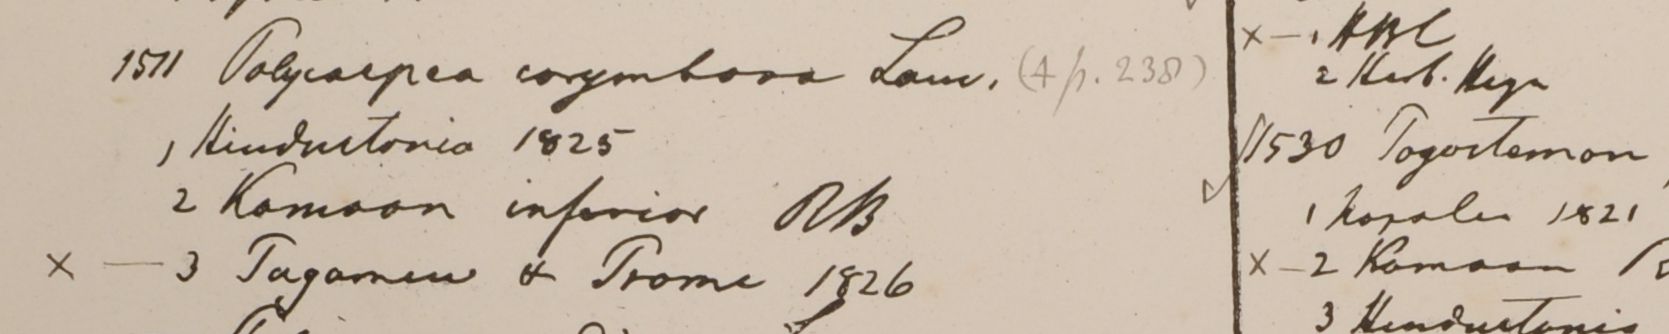 1511 Polycarpea corymbosa Lam. (4 p. 238)
1 Hindustonia 1825
2 Kamaon inferior RB
x — 3 Tagamew & Prome 1826
x — 1 HBC
2 Herb. Heyn
1530 Pogostemon
1 Napalia 1821
x — 2 Kamaon
3 Hindustania